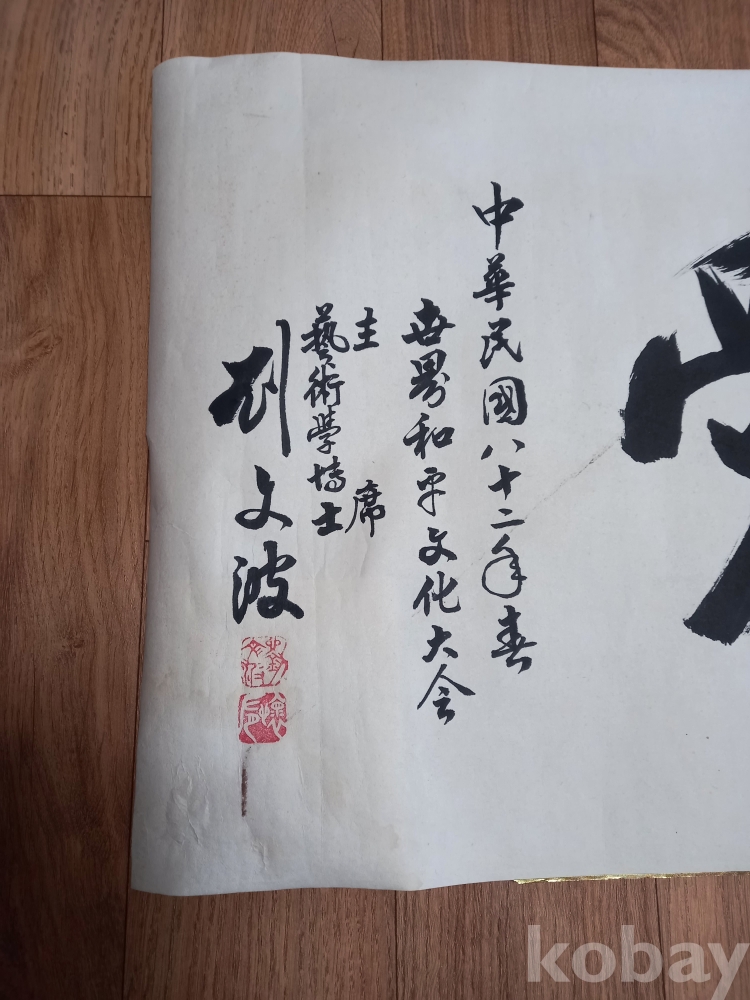 中華民國八十二年春
世界和平文化大会
主席
藝術學博士
劉文波
kobay